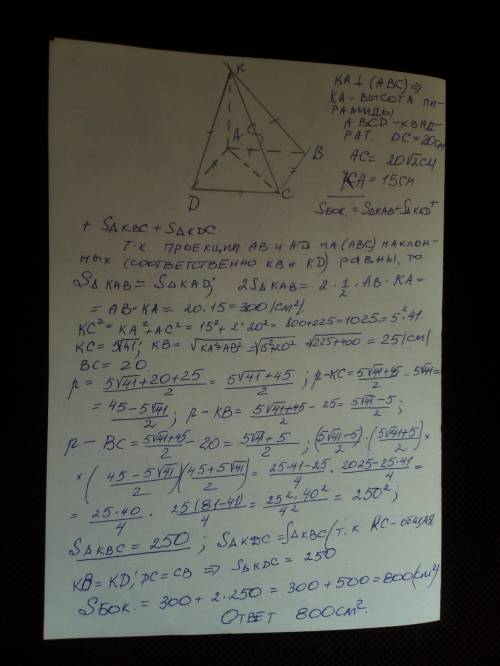 K
A
S
B
D
C
KA ⊥ (ABC) ⇒
KA - ВЫСОТА ПИ-
РАМИДЫ
ABCD - КВАД-
РАТ. DC = 20 см
AC = 20√2 см
KA = 15 см
Sбок. = SΔKAB + SΔKAD +
+ SΔKBC + SΔKDC.
Т.К. ПРОЕКЦИИ AB И AD НА (ABC) НАКЛОН-
НЫХ (СООТВЕТСТВЕННО KB И KD) РАВНЫ, ТО
SΔKAB = SΔKAD; 2SΔKAB = 2·1/2·AB·KA =
= AB·KA = 20·15 = 300 (см²).
KC² = KA² + AC² = 15² + 2·20² = 800+225 = 1025 = 5²·41.
KC = 5√41; KB = √(KA²+AB²) = √(15²+20²) = √(225+400) = 25 (см)
BC = 20.
p = (5√41+20+25)/2 = (5√41+45)/2; p-KC = (5√41+45)/2 - 5√41 =
= (45-5√41)/2; p-KB = (5√41+45)/2 - 25 = (5√41-5)/2;
p-BC = (5√41+45)/2 - 20 = (5√41+5)/2; ((5√41-5)/2)·((5√41+5)/2) ×
× ((45-5√41)/2)((45+5√41)/2) = (25·41-25)/4 · (2025-25·41)/4 =
= (25·40)/4 · (25(81-41))/4 = (25²·40²)/4² = 250²;
SΔKBC = 250; SΔKDC = SΔKBC (т.к KC - ОБЩАЯ
KB = KD; DC = CB ⇒ SΔKDC = 250
Sбок. = 300 + 2·250 = 300 + 500 = 800 (см²)
ОТВЕТ 800 см².